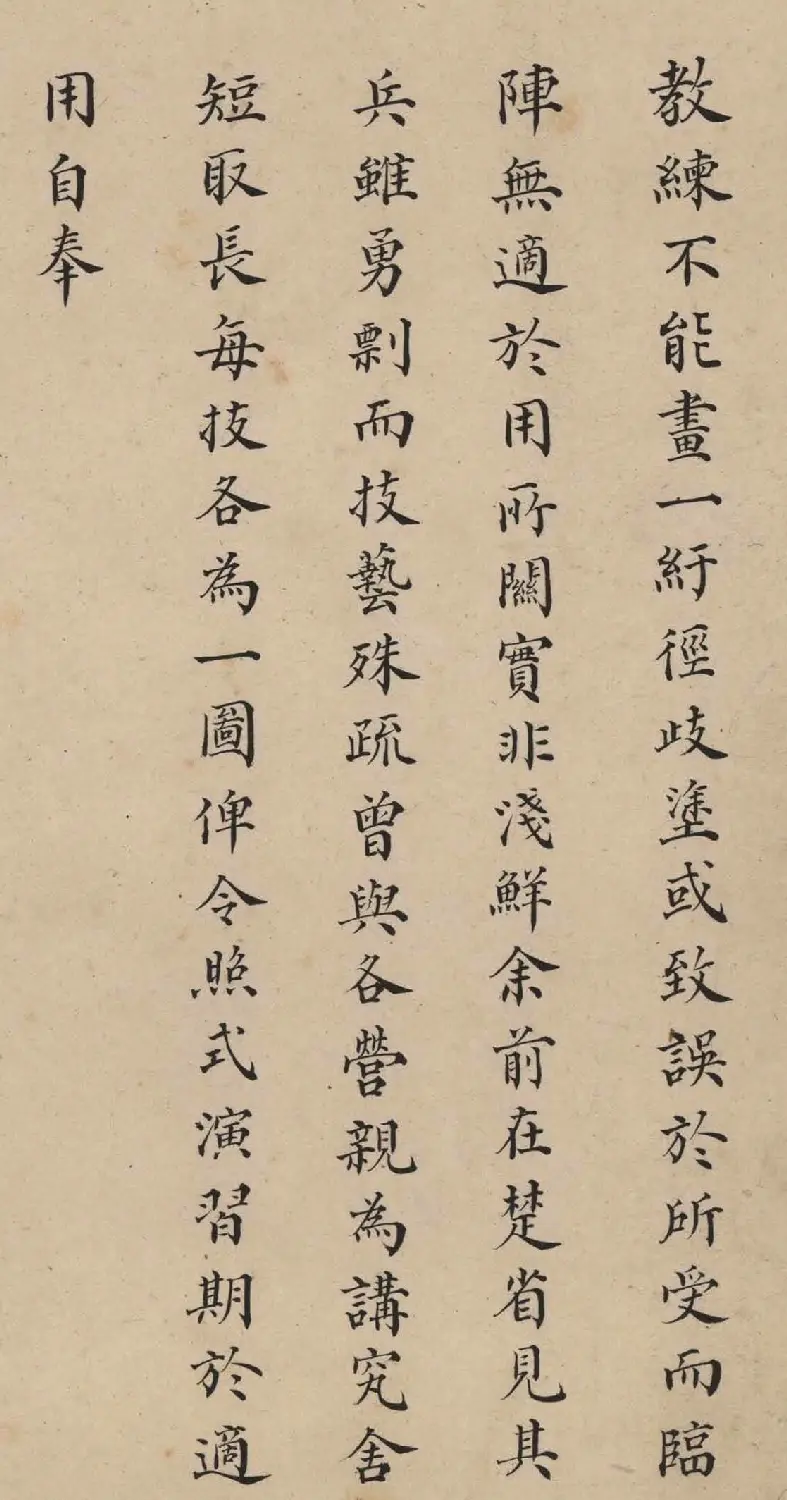 教練不能畫一紆徑歧塗或致誤於所受而臨
陣無適於用所關實非淺鮮余前在楚省見其
兵雖勇剽而技藝殊疏曾與各營親為講究舍
短取長每技各為一圖俾令照式演習期於適
用自奉